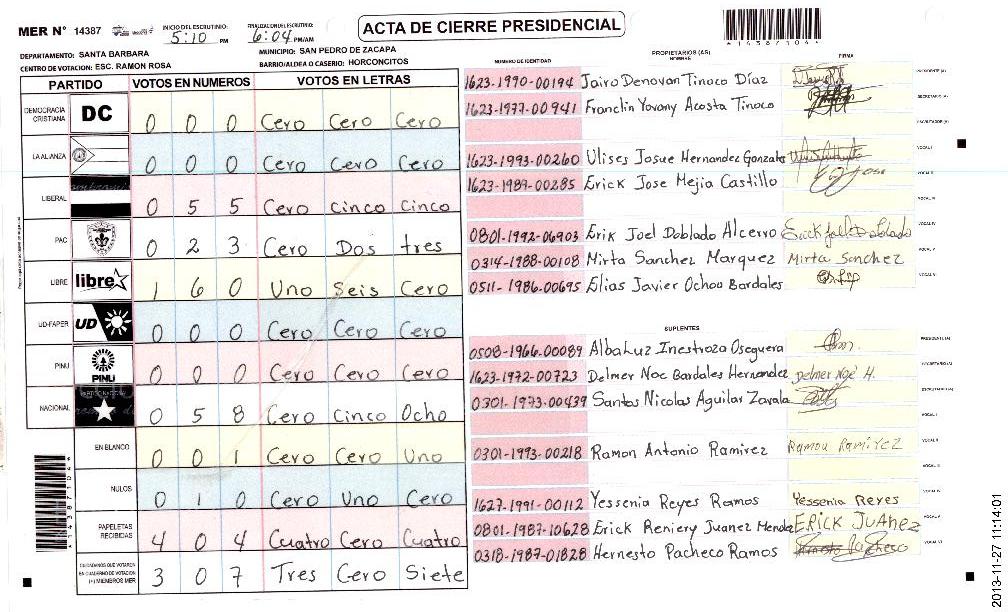 MER N° 14387
INICIO DEL ESCRUTINIO: 5:10 PM
FINALIZACION DEL ESCRUTINIO: 6:04 PM/AM
ACTA DE CIERRE PRESIDENCIAL
DEPARTAMENTO: SANTA BARBARA
MUNICIPIO: SAN PEDRO DE ZACAPA
CENTRO DE VOTACION: ESC. RAMON ROSA
BARRIO/ALDEA O CASERIO: HORCONCITOS
PARTIDO VOTOS EN NUMEROS VOTOS EN LETRAS
DEMOCRACIA CRISTIANA DC 0 0 0 Cero Cero Cero
LA ALIANZA 0 0 0 Cero Cero Cero
LIBERAL 0 5 5 Cero Cinco Cinco
PAC 0 2 3 Cero Dos tres
LIBRE libre 1 6 0 Uno Seis Cero
UD-FAPER UD 0 0 0 Cero Cero Cero
PINU PINU 0 0 0 Cero Cero Cero
NACIONAL 0 5 8 Cero Cinco Ocho
EN BLANCO 0 0 1 Cero Cero Uno
NULOS 0 1 0 Cero Uno Cero
PAPELETAS RECIBIDAS 4 0 4 Cuatro Cero Cuatro
CIUDADANOS QUE VOTARON EN CUADERNO DE VOTACION (+) MIEMBROS MER 3 0 7 Tres Cero Siete
PROPIETARIOS (AS)
NUMERO DE IDENTIDAD NOMBRE FIRMA
1623-1990-00194 Jairo Denovan Tinoco Díaz PRESIDENTE (A)
1623-1977-00941 Franclin Yovany Acosta Tinoco SECRETARIO (A)
ESCRUTADOR (A)
1623-1993-00260 Ulises Josue Hernandez Gonzales VOCAL I
1623-1989-00285 Erick Jose Mejia Castillo VOCAL II
VOCAL III
0801-1992-06903 Erik Joel Doblado Alcerro Erick Joel Doblado VOCAL IV
0314-1988-00108 Mirta Sanchez Marquez Mirta Sanchez VOCAL V
0511-1986-00695 Elias Javier Ochoa Bardales VOCAL VI
SUPLENTES
0508-1966-00089 AlbaLuz Inestroza Oseguera PRESIDENTE (A)
1623-1972-00723 Delmer Noe Bardales Hernandez Delmer Noé H. SECRETARIO (A)
0301-1973-00439 Santos Nicolas Aguilar Zavala ESCRUTADOR (A)
VOCAL I
0301-1993-00218 Ramon Antonio Ramirez Ramon Ramirez VOCAL II
VOCAL III
1627-1991-00112 Yessenia Reyes Ramos Yessenia Reyes VOCAL IV
0801-1987-10628 Erick Reniery Juanez Mendoza ERICK JUANEZ VOCAL V
0318-1987-01828 Hernesto Pacheco Ramos VOCAL VI
2013-11-27 11:14:01